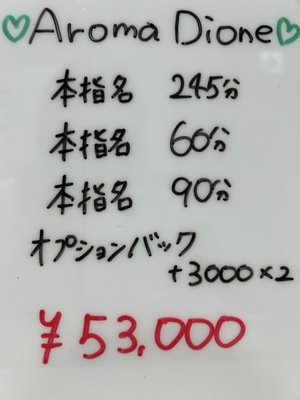 Aroma Dione
本指名 245分
本指名 60分
本指名 90分
オプションバック
+3000×2
¥53,000